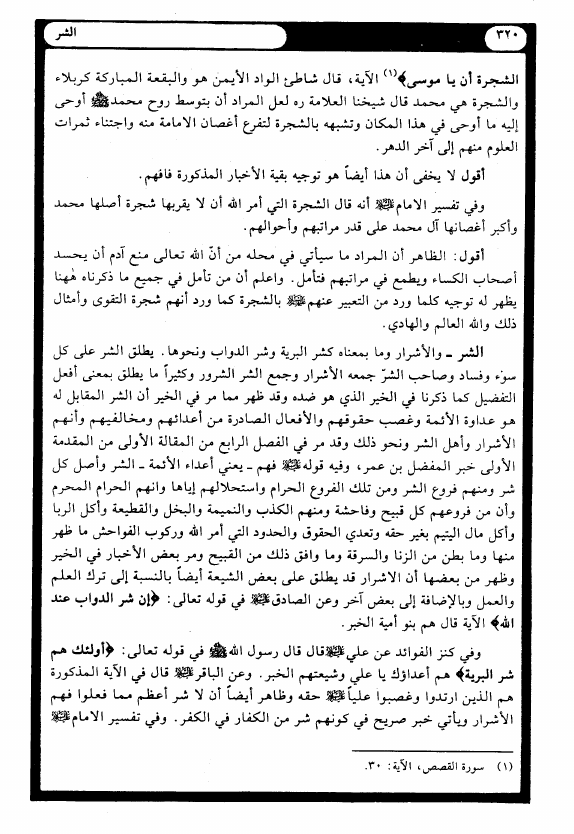 ٣٢٠
الشر
الشجرة أن يا موسى﴾(١) الآية، قال شاطئ الواد الأيمن هو والبقعة المباركة كربلاء
والشجرة هي محمد قال شيخنا العلامة ره لعل المراد أن بتوسط روح محمدﷺ أوحى
إليه ما أوحى في هذا المكان وتشبهه بالشجرة لتفرع أغصان الامامة منه واجتناء ثمرات
العلوم منهم إلى آخر الدهر.
أقول لا يخفى أن هذا أيضاً هو توجيه بقية الأخبار المذكورة فافهم.
وفي تفسير الامام أنه قال الشجرة التي أمر الله أن لا يقربها شجرة أصلها محمد
وأكبر أغصانها آل محمد على قدر مراتبهم وأحوالهم.
أقول: الظاهر أن المراد ما سيأتي في محله من أنّ الله تعالى منع آدم أن يحسد
أصحاب الكساء ويطمع في مراتبهم فتأمل. واعلم أن من تأمل في جميع ما ذكرناه ههنا
يظهر له توجيه كلما ورد من التعبير عنهم بالشجرة كما ورد أنهم شجرة التقوى وأمثال
ذلك والله العالم والهادي.
الشر ـ والأشرار وما بمعناه كشر البرية وشر الدواب ونحوها. يطلق الشر على كل
سوء وفساد وصاحب الشرّ جمعه الأشرار وجمع الشر الشرور وكثيراً ما يطلق بمعنى أفعل
التفضيل كما ذكرنا في الخير الذي هو ضده وقد ظهر مما مر في الخير أن الشر المقابل له
هو عداوة الأئمة وغصب حقوقهم والأفعال الصادرة من أعدائهم ومخالفيهم وأنهم
الأشرار وأهل الشر ونحو ذلك وقد مر في الفصل الرابع من المقالة الأولى من المقدمة
الأولى خبر المفضل بن عمر، وفيه قوله فهم ـ يعني أعداء الأئمة ـ الشر وأصل كل
شر ومنهم فروع الشر ومن تلك الفروع الحرام واستحلالهم إياها وانهم الحرام المحرم
وأن من فروعهم كل قبيح وفاحشة ومنهم الكذب والنميمة والبخل والقطيعة وأكل الربا
وأكل مال اليتيم بغير حقه وتعدي الحقوق والحدود التي أمر الله وركوب الفواحش ما ظهر
منها وما بطن من الزنا والسرقة وما وافق ذلك من القبيح ومر بعض الأخبار في الخير
وظهر من بعضها أن الاشرار قد يطلق على بعض الشيعة أيضاً بالنسبة إلى ترك العلم
والعمل وبالإضافة إلى بعض آخر وعن الصادق في قوله تعالى: ﴿إن شر الدواب عند
الله﴾ الآية قال هم بنو أمية الخبر.
وفي كنز الفوائد عن علي قال قال رسول اللهﷺ في قوله تعالى: ﴿أولئك هم
شر البرية﴾ هم أعداؤك يا علي وشيعتهم الخبر. وعن الباقر قال في الآية المذكورة
هم الذين ارتدوا وغصبوا علياً حقه وظاهر أيضاً أن لا شر أعظم مما فعلوا فهم
الأشرار ويأتي خبر صريح في كونهم شر من الكفار في الكفر. وفي تفسير الامام
(١) سورة القصص، الآية: ٣٠.